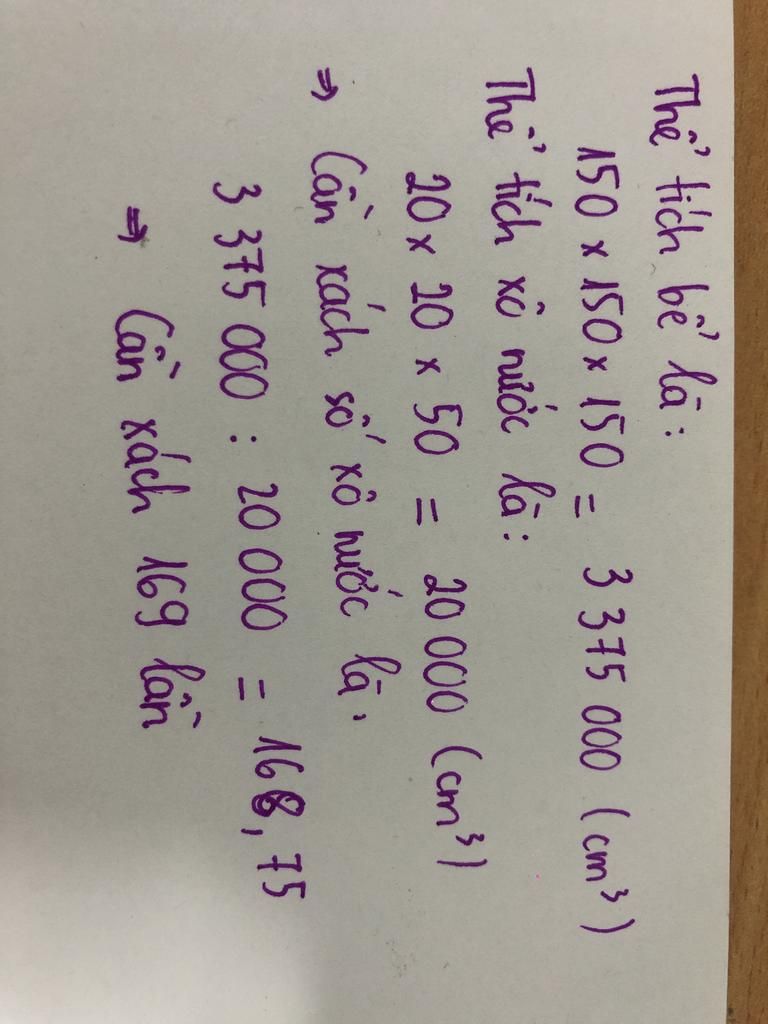 Thể tích bể là:
150 x 150 x 150 = 3 375 000 (cm³)
Thể tích xô nước là:
20 x 20 x 50 = 20 000 (cm³)
⇒ Cần xách số xô nước là,
3 375 000 : 20 000 = 168,75
⇒ Cần xách 169 lần